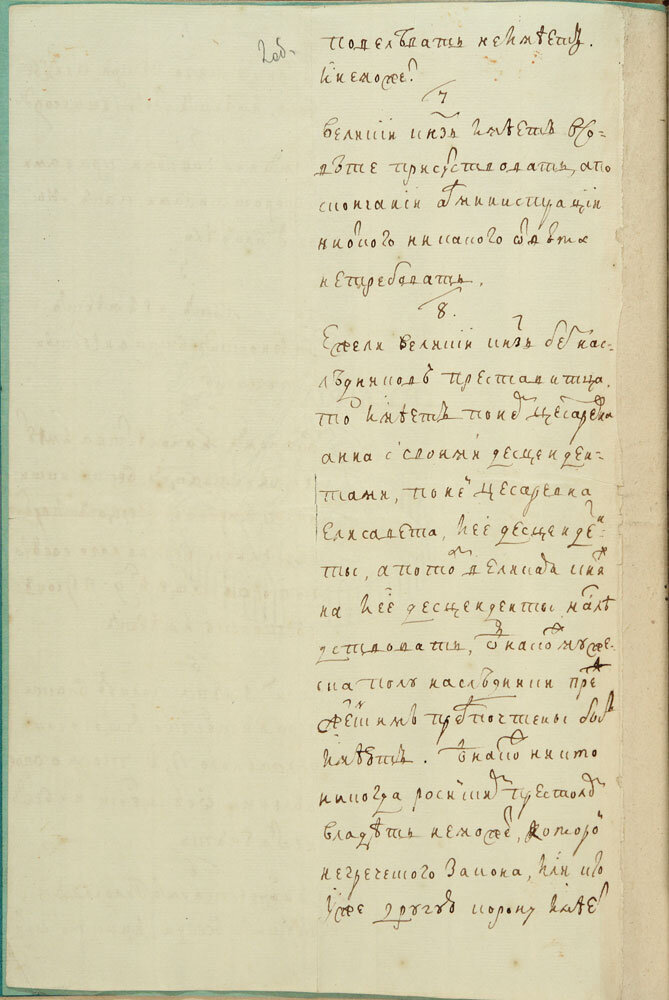 2 об.
повелѣвать неимѣетъ.
и неможе͏т
7
великій кнзь имѣетъ в со-
вѣте присуствовать, а по
окончаніи администраціи
никакого отвѣта
нетребовать.
8.
Ежели великій кнзь без нас-
лѣдниковъ преставитца,
то имѣетъ по нем цесаревна
анна с своими десценден-
тами, по ней цесаревна
елисавета, и ее десценден-
ты, а потом
на и ее десценденты наслѣ
дствовать, однако муже-
ска полу наслѣдники пред
преѣпочтены быть
имѣютъ. однако никто
никогда россиискимъ престоломъ
владѣть неможетъ, которой
негреческого закона, или кто
уже другую корону имѣетъ